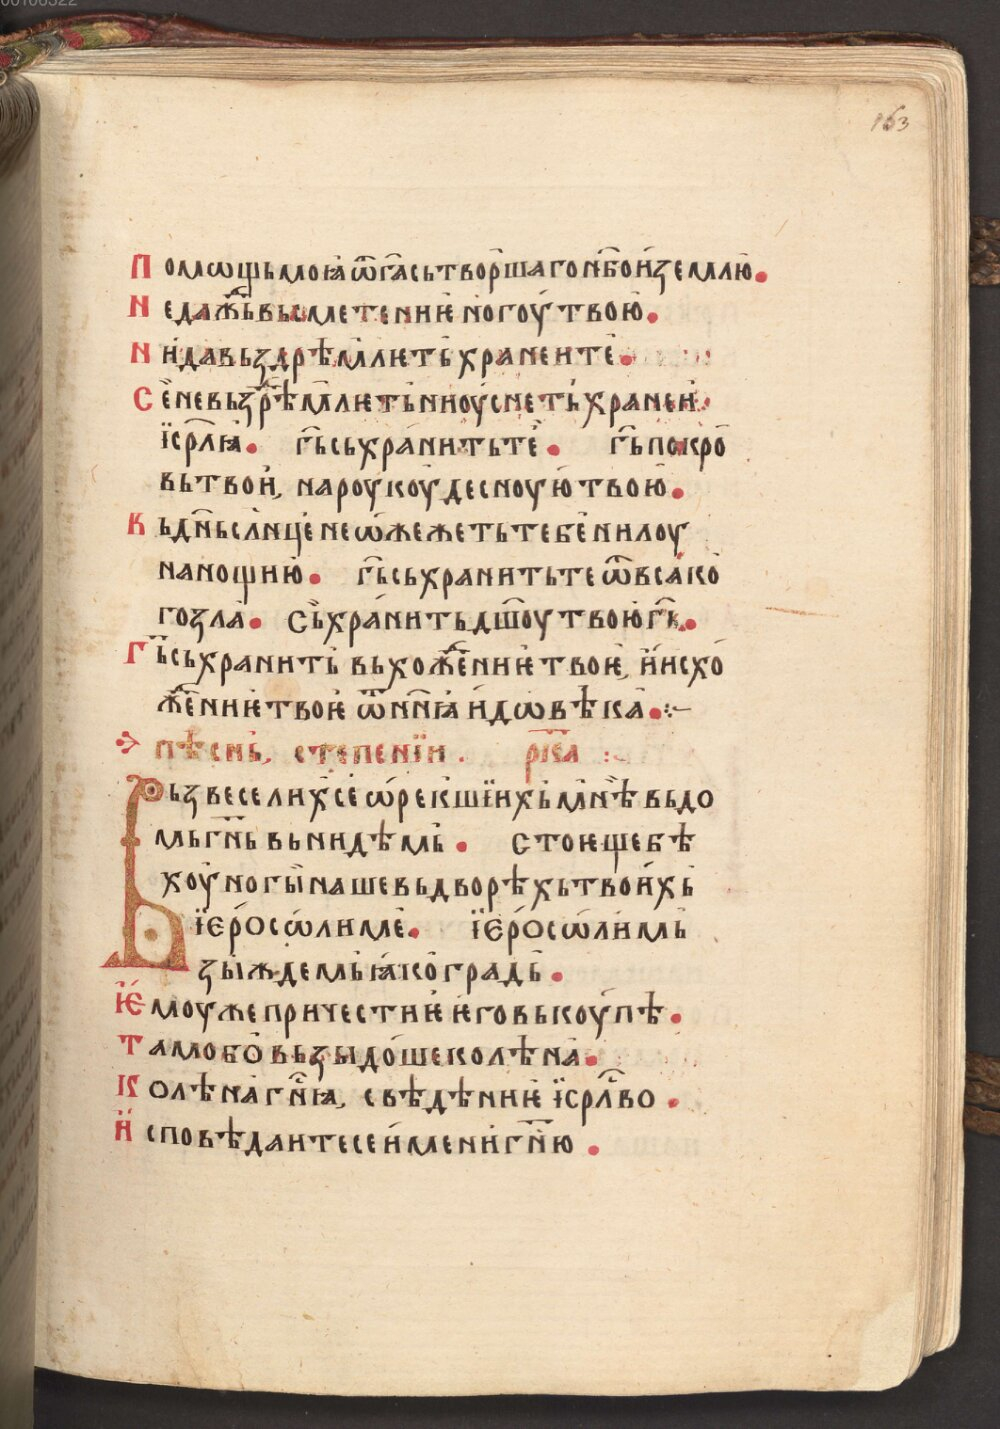 00106322
163
Помѡщь моꙗ ѿ га҃ сътворшаго нб҃о и землю.
Не даждь въ сметениѥ ногоу твою.
Ни да въздрѣмлѥть хранеи те.
Се не въздрѣмлѥть ни оусметь хранеи
їсрл҃ꙗ. гь҃ съхранить те. гь҃ покро
въ твои, на роукоу десноую твою.
Въ дн҃ь слнце не ѡжежеть тебе ни лоу
на нощию. гь҃ съхранить те ѿ всако
го зла. Съхранить дш҃оу твою гь҃.
Гь҃ съхранить въхождениѥ твоѥ, и исхо
ждениѥ твоѥ ѿ нн҃ꙗ и дѡ вѣка.
пѣснь, степенїи. рк҃а
Възвеселих се ѡ рекшїихь мнѣ въ до
мь гн҃ь вънидѣмь. Стоѥще бѣ
хоу ногы наше въ дворѣхь твоихь
їєросѡлиме. їєросѡлимь
зыждемь ꙗко градь.
Ѥмоуже причестиѥ ѥго въкоупѣ.
Тамо бо възыдоше колѣна.
Колѣна гн҃ꙗ, свѣдѣниѥ їсрл҃во.
Исповѣдаитесе имени гн҃ю.